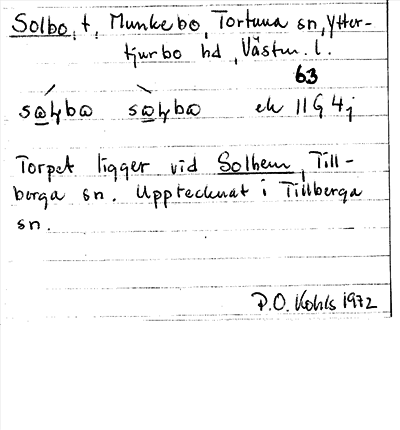 Solbo, t, Munkebo, Tortuna sn, Ytter-
tjurbo hd, Västm. l.
63
ek 11 G 4 j
Torpet ligger vid Solhem, Till-
berga sn. Upptecknat i Tillberga
sn.
P.O. Kohls 1972